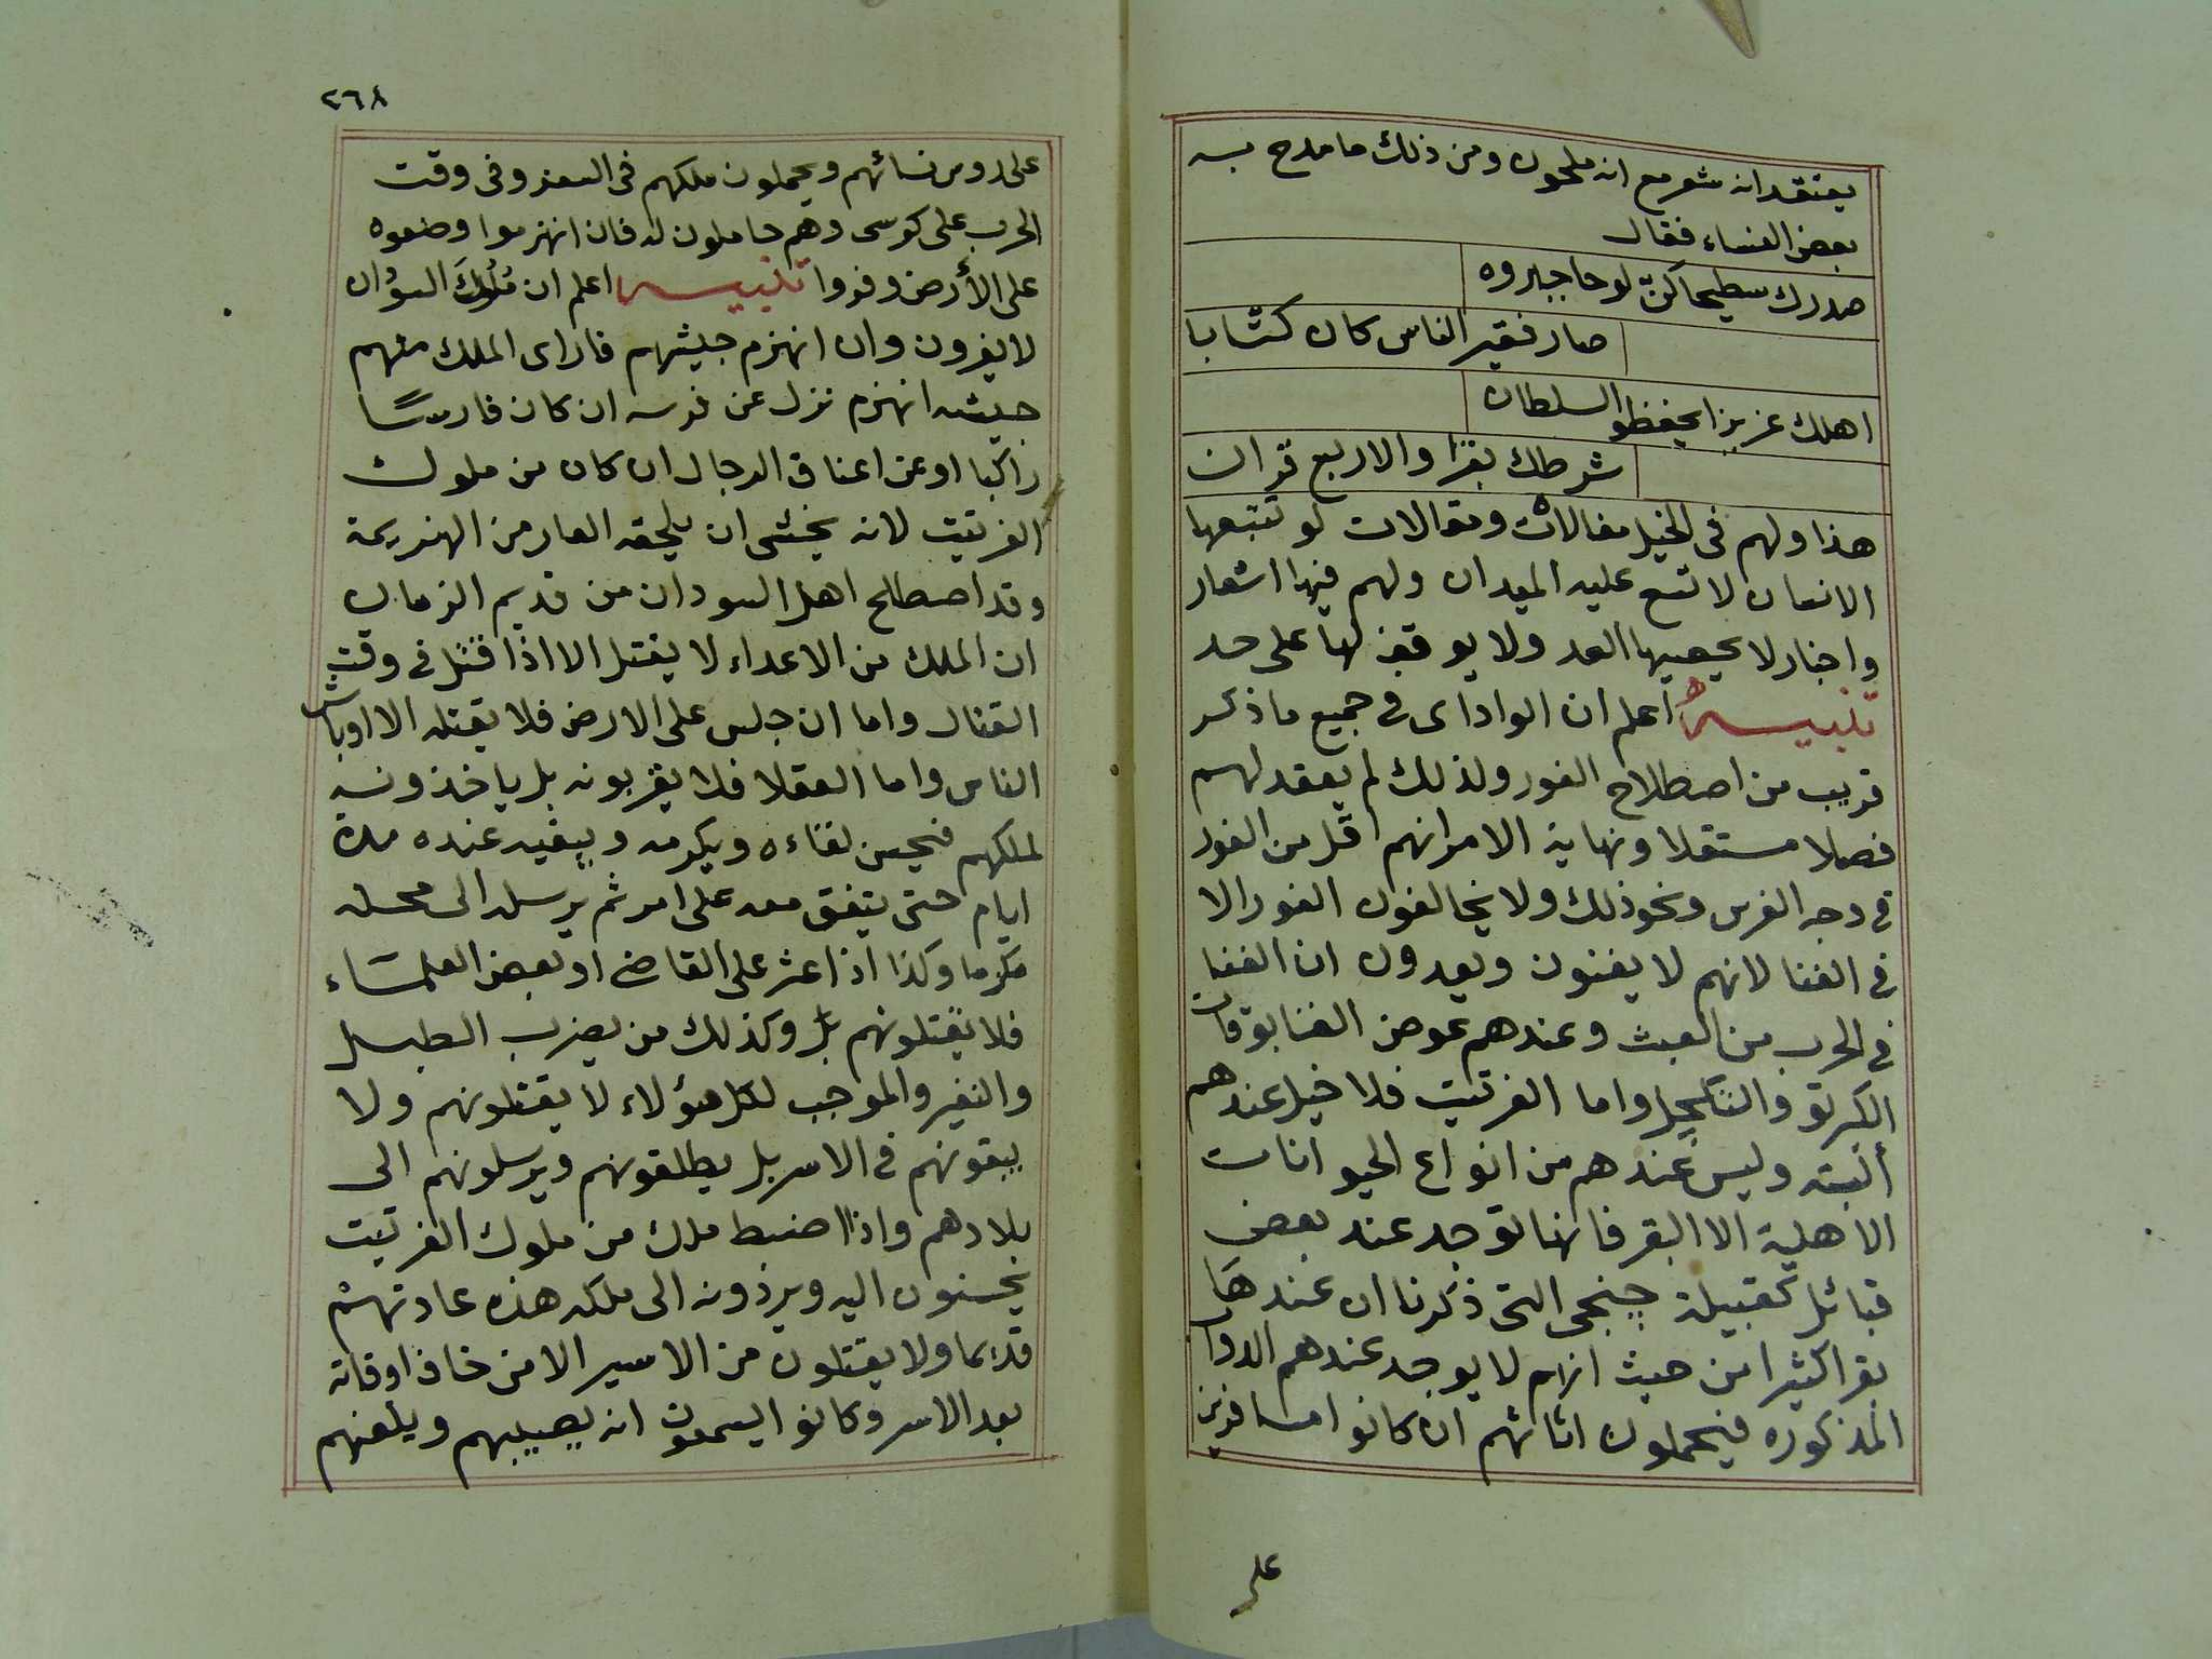 يعتقد انه شعر مع انه ملحون ومن ذلك ما مدح به
بعض النساء فقال
صدرك سطيحا كن لوحا جبروه
صار فقير الناس كان كتابا
اهلك عزيزا يحفظو السلطان
شرطك يقرا والاربع قران
هذا ولهم فى الخيل مغالاث ومقالات لو تتبعها
الانسان لاتسع عليه الميدان ولهم فيها اشعار
واخبار لا يحصيها العد ولا يوقف لها على حد
تنبيه اعلم ان الواداى فى جميع ما ذكر
قريب من اصطلاح الفور ولذلك لم يعقد لهم
فصلا مستقلا ونهاية الامر انهم اقل من الفور
فى وجه الفرس ونحو ذلك ولا يخالفون الفور الا
فى الغنا لانهم لا يغنون ويعدون ان الغنا
فى الحرب من العبث وعندهم عوض الغنا بوقات
الكرتو والتكجل واما الفرتيت فلا خيل عندهم
ألبته وليس عندهم من انواع الحيوانات
الاهلية الا البقر فانها توجد عند بعض
قبائل كقبيلة جنجى التى ذكرنا ان عندها
بقرا كثيرا من حيث انهم لا يوجد عندهم الدواب
المذكوره فيحملون اثاثهم ان كانوا مسافرين
على
٢٦٨
على روس نسائهم ويحملون ملكهم فى السفر وفى وقت
الحرب على كوسى وهم حاملون له فان انهزموا وضعوه
على الأرض وفروا تنبيه اعلم ان مُلوكَ السودان
لا يفرون وان انهزم جيشهم فان راى الملك منهم
جيشه انهزم نزل عن فرسه ان كان فارسًا
راكبا او عن اعناق الرجال ان كان من ملوك
الفرتيت لانه يخشى ان يلحقه العار من الهزيمة
وقد اصطلح اهل السودان من قديم الزمان
ان الملك من الاعداء لا يقتل الا اذا قتل فى وقت
القتال واما ان جلس على الارض فلا يقتله الا اوباش
الناس واما العقلا فلا يقربونه بل ياخذونه
لملكهم فيحسن لقاءه ويكرمه ويبقيه عنده مدة
ايام حتى يتفق معه على امر ثم يرسله الى محله
مكرما وكذا اذا عثر على القاضى او بعض العلماء
فلا يقتلونهم بل وكذلك من يضرب الطبل
والنفير والموجب لكل هؤلاء لا يقتلونهم ولا
يبقونهم فى الاسر بل يطلقونهم ويرسلونهم الى
بلادهم واذا ضبط ملك من ملوك الفرتيت
يحسنون اليه ويردونه الى ملكه هذه عادتهم
قديما ولا يقتلون من الاسير الا من خاف اوفاته
بعد الاسر وكانوا يسمعون انه يصيبهم ويلعنهم